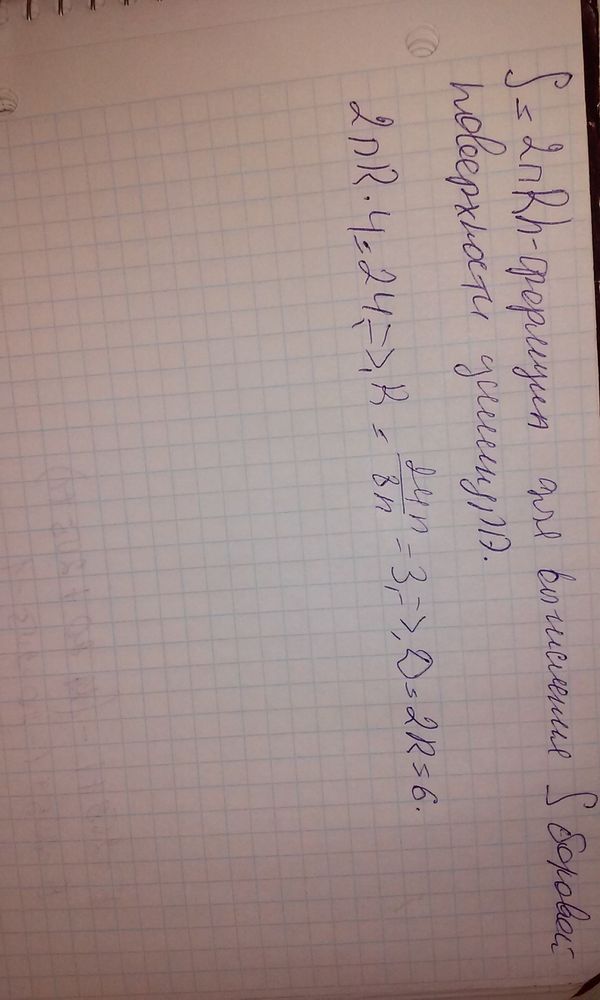 S = 2πRh - формула для вычисления S боковой
поверхности цилиндра.
2πR · 4 = 24, =>, R = 24π/8π = 3, =>, D = 2R = 6.